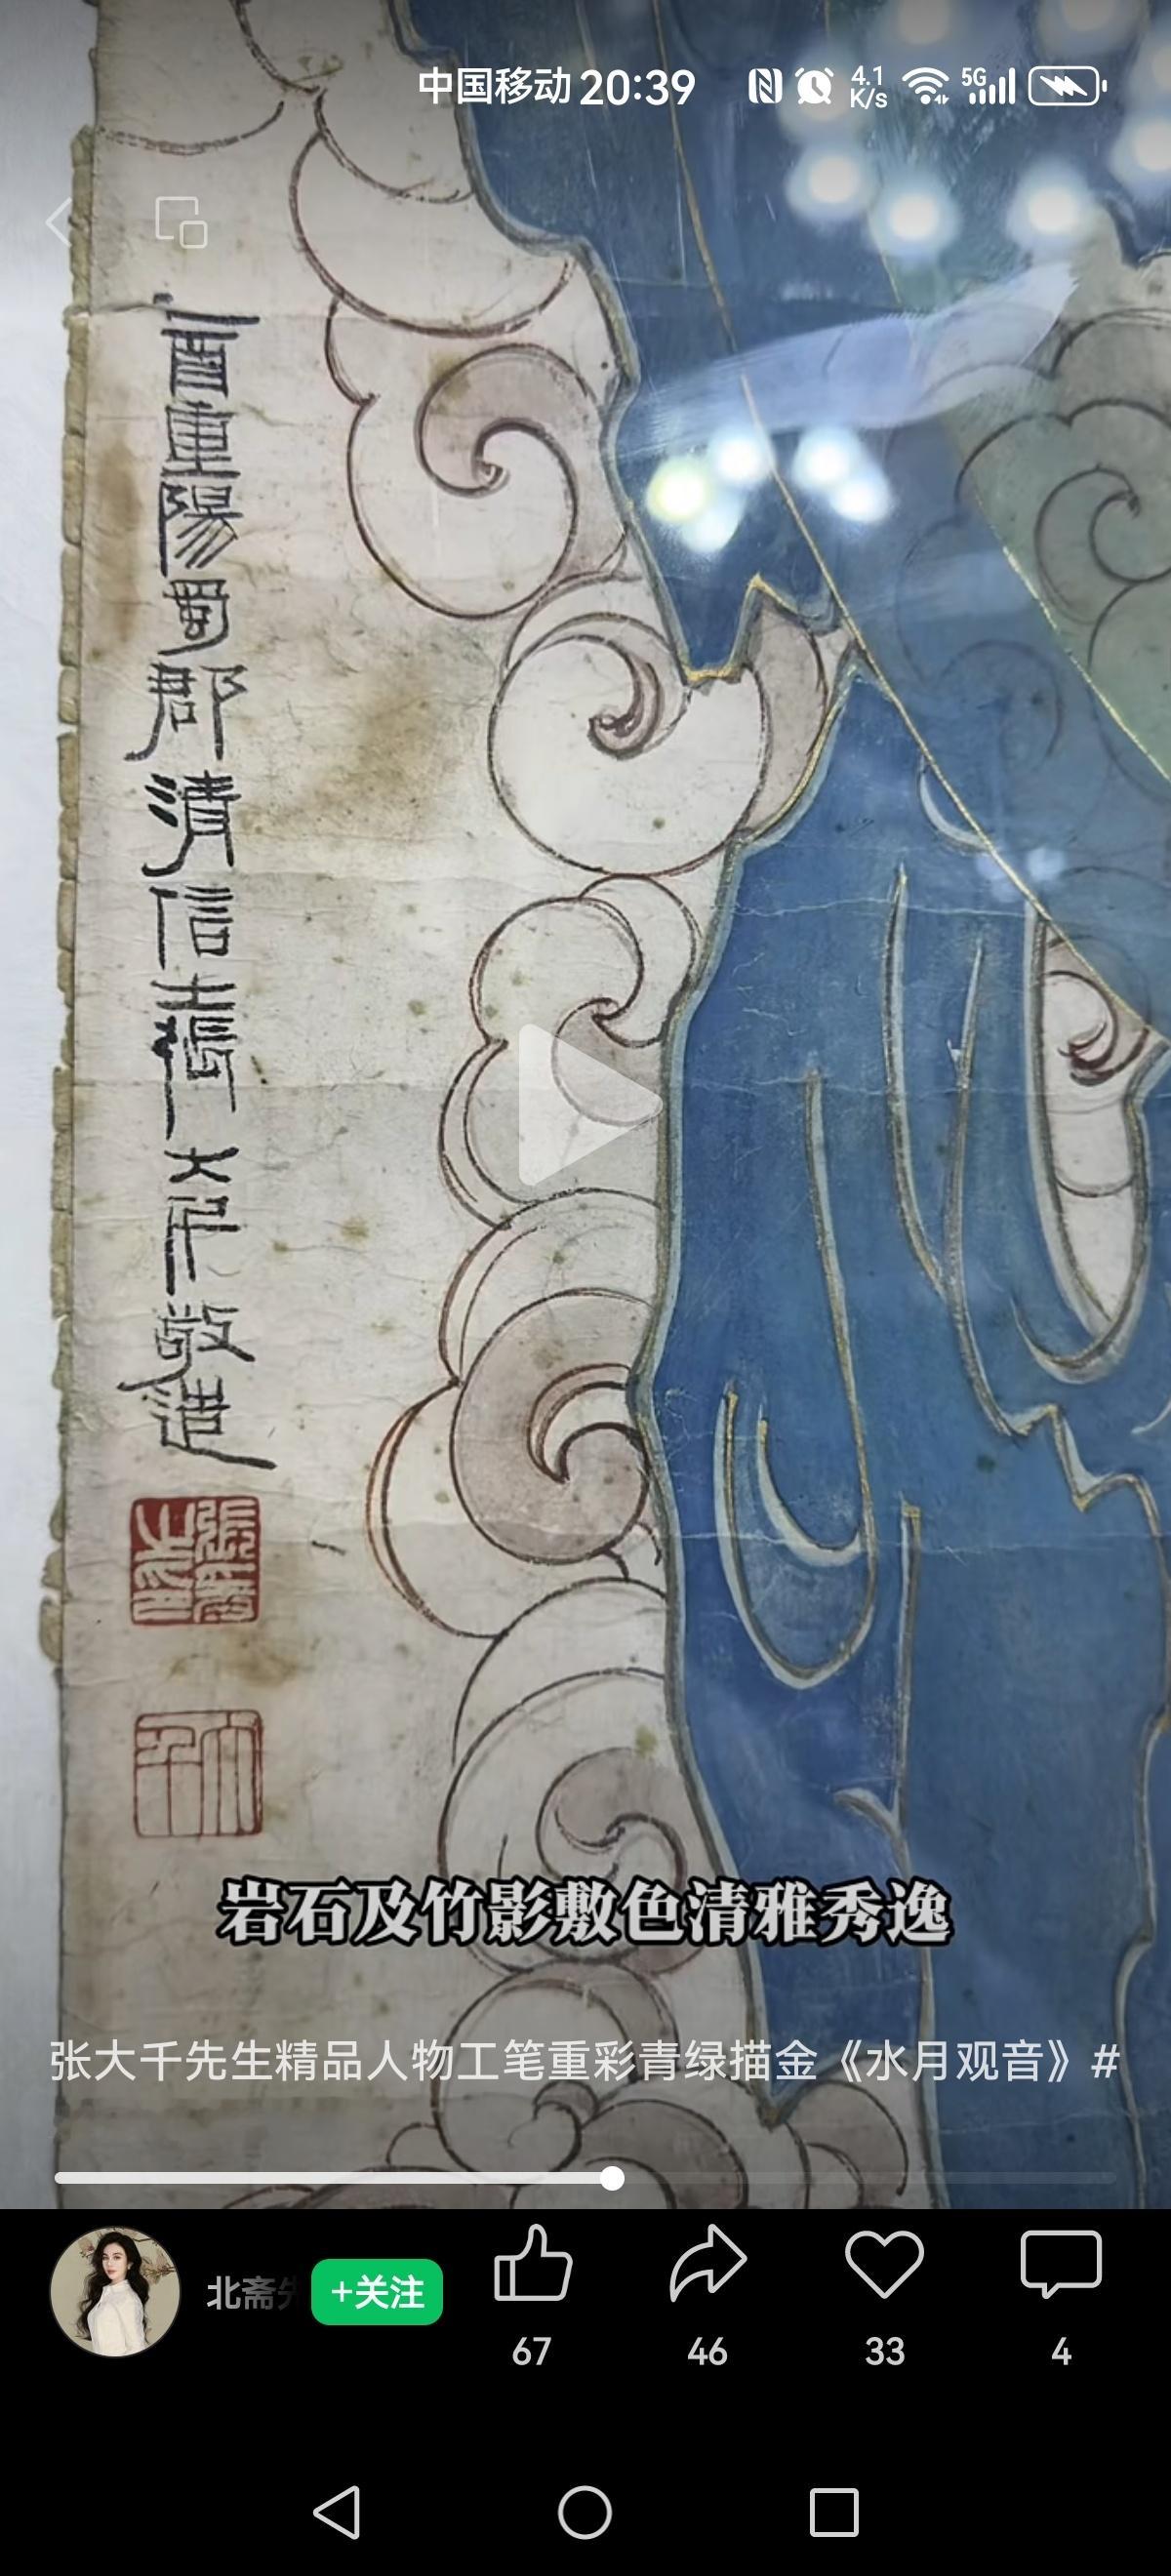 中国移动 20:39 4.1 K/s 5G
乙酉重陽蜀郡清信士張大千敬造
張爰之印
大千
岩石及竹影敷色清雅秀逸
张大千先生精品人物工笔重彩青绿描金《水月观音》#
北斋先
+关注
67 46 33 4